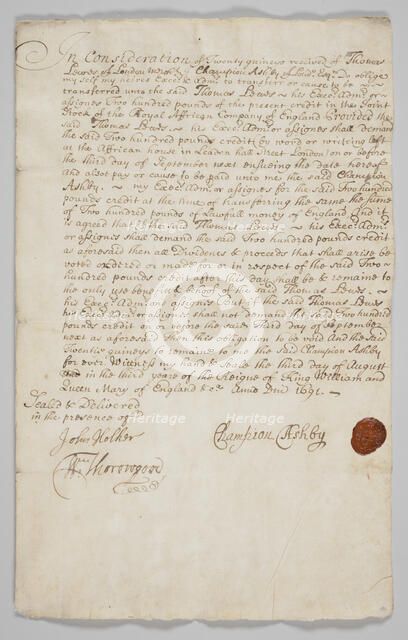 In Consideration of Twenty guineas received of Thomas
Lewes of London Merch.t I Champion Ashby of Lond: Esq. Do oblige
my self my heires Exec.rs & Adm.rs to transferr or cause to be
transferred unto the said Thomas Lewes his Exec.rs Adm.rs or
assignes Two hundred pounds of the present credit in the Joint
Stock of the Royall Affrican Company of England Provided the
said Thomas Lewes his Exec.rs Adm.rs or assignes shall demand
the said Two hundred pounds credit (by word or writing left
at the Affrican house in Leaden hall Street London) on or before
the third day of September next ensuing the date hereof
and also pay or cause to be paid unto me the said Champion
Ashby my Exec.rs Adm.rs or assignes for the said Two hundred
pounds credit at the time of transferring the same the sume
of Two hundred pounds of Lawfull money of England And it
is agreed that if the said Thomas Lewes his Exec.rs Adm.rs
or assignes shall demand the said Two hundred pounds credit
as aforesaid then all Dividents & proceeds that shall arise be
voted ordered or made for or in respect of the said Two
hundred pounds credit after this day shall be & remaine to
the only use benefit & behoof of the said Thomas Lewes
his Exec.rs Adm.rs or assignes But if the said Thomas Lewes
his Exec.rs Adm.rs or assignes shall not demand the said Two hundred
pounds credit on or before the said Third day of September
next as aforesaid Then this obligation to be void And the said
Twenty guineas to remaine to me the said Champion Ashby
for ever. Witness my hand & seale the third day of August
in the third year of the Reigne of King William and
Queen Mary of England &c.a Anno Dni 1691.
Sealed & Delivered
in the presence of
John Holker
Champion Ashby
W.m Thorowgood
Heritage Heritage